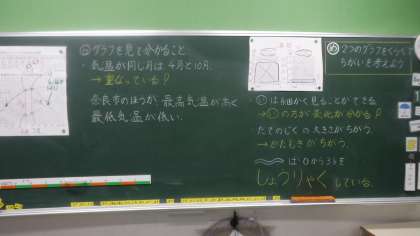 グラフを見て分かること
・気温が同じ月は4月と10月。
→重なっている!
奈良市のほうが、最高気温が高く
最低気温が低い。
め 2つのグラフをくらべて
ちがいを考えよう
は細かく見ることができる。
の方が変化が分かる!
・たてのじくの大きさがちがう。
→かたむきがちがう。
は0から
しょうりゃく している。